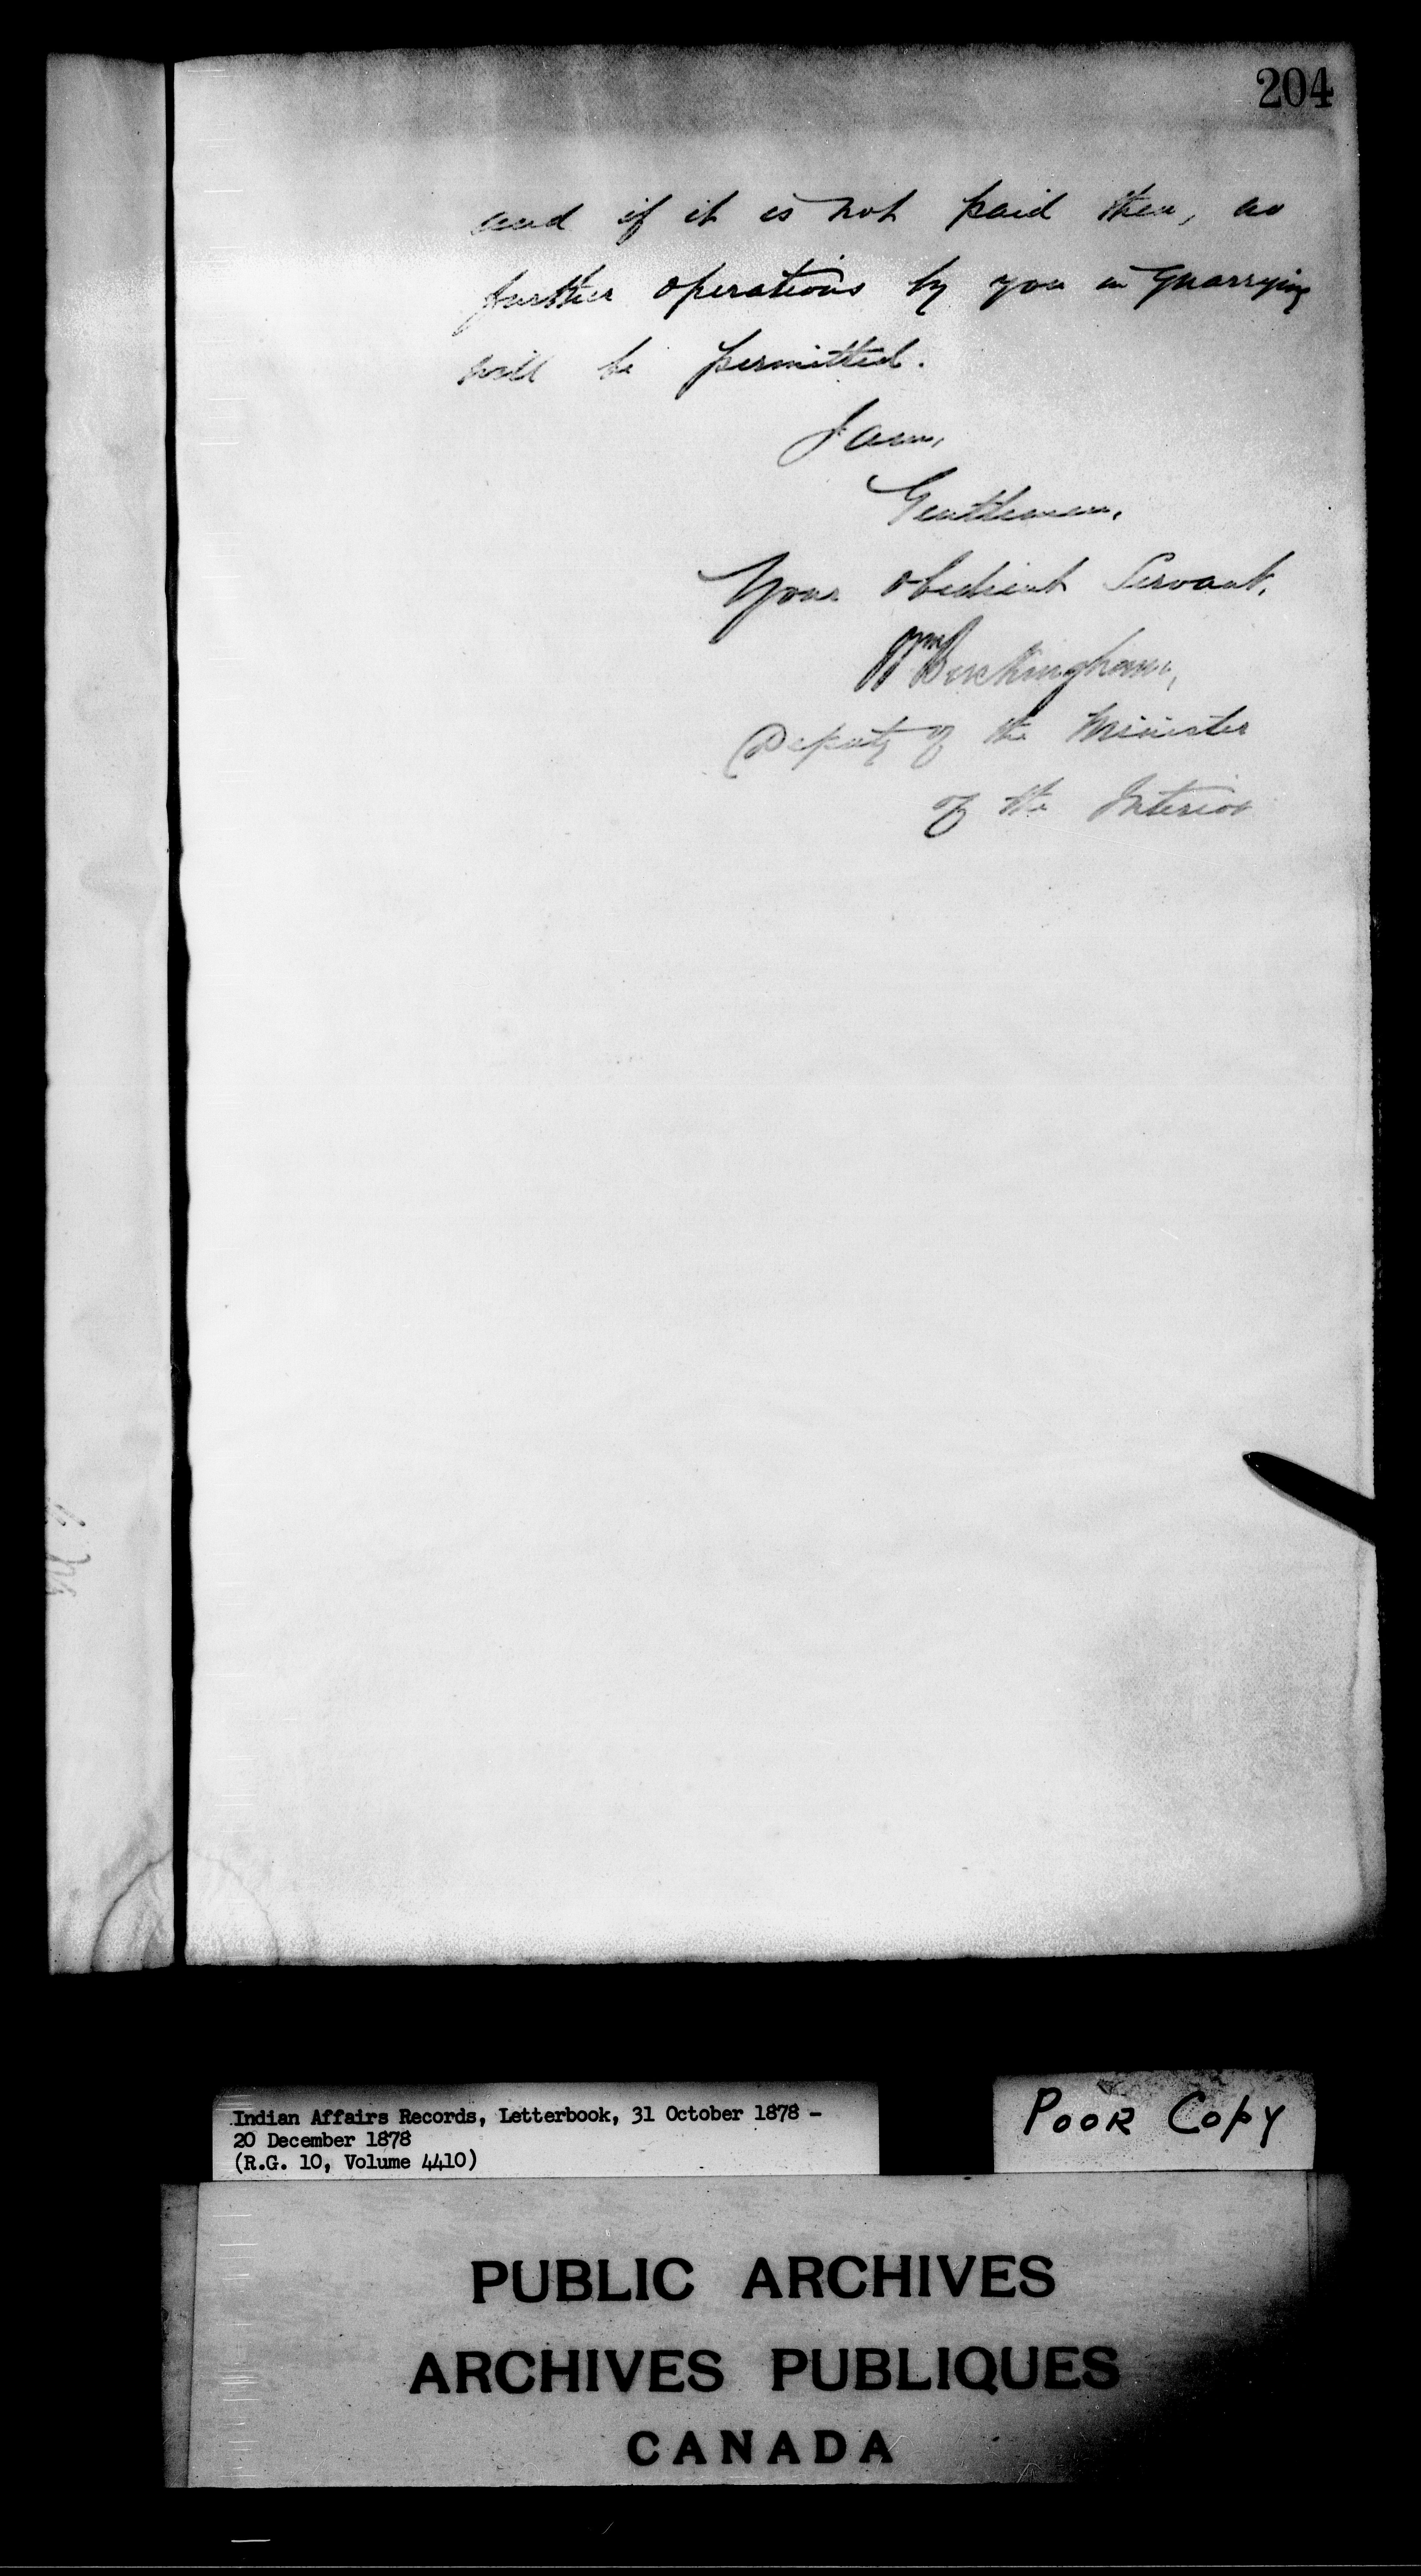 204
and if it is not paid then, no
further operations by you in quarrying
will be permitted.
I am,
Gentlemen,
Your obedient Servant,
Wm Buckingham,
Deputy of the Minister
of the Interior
Indian Affairs Records, Letterbook, 31 October 1878 -
20 December 1878
(R.G. 10, Volume 4410)
POOR COPY
PUBLIC ARCHIVES
ARCHIVES PUBLIQUES
CANADA